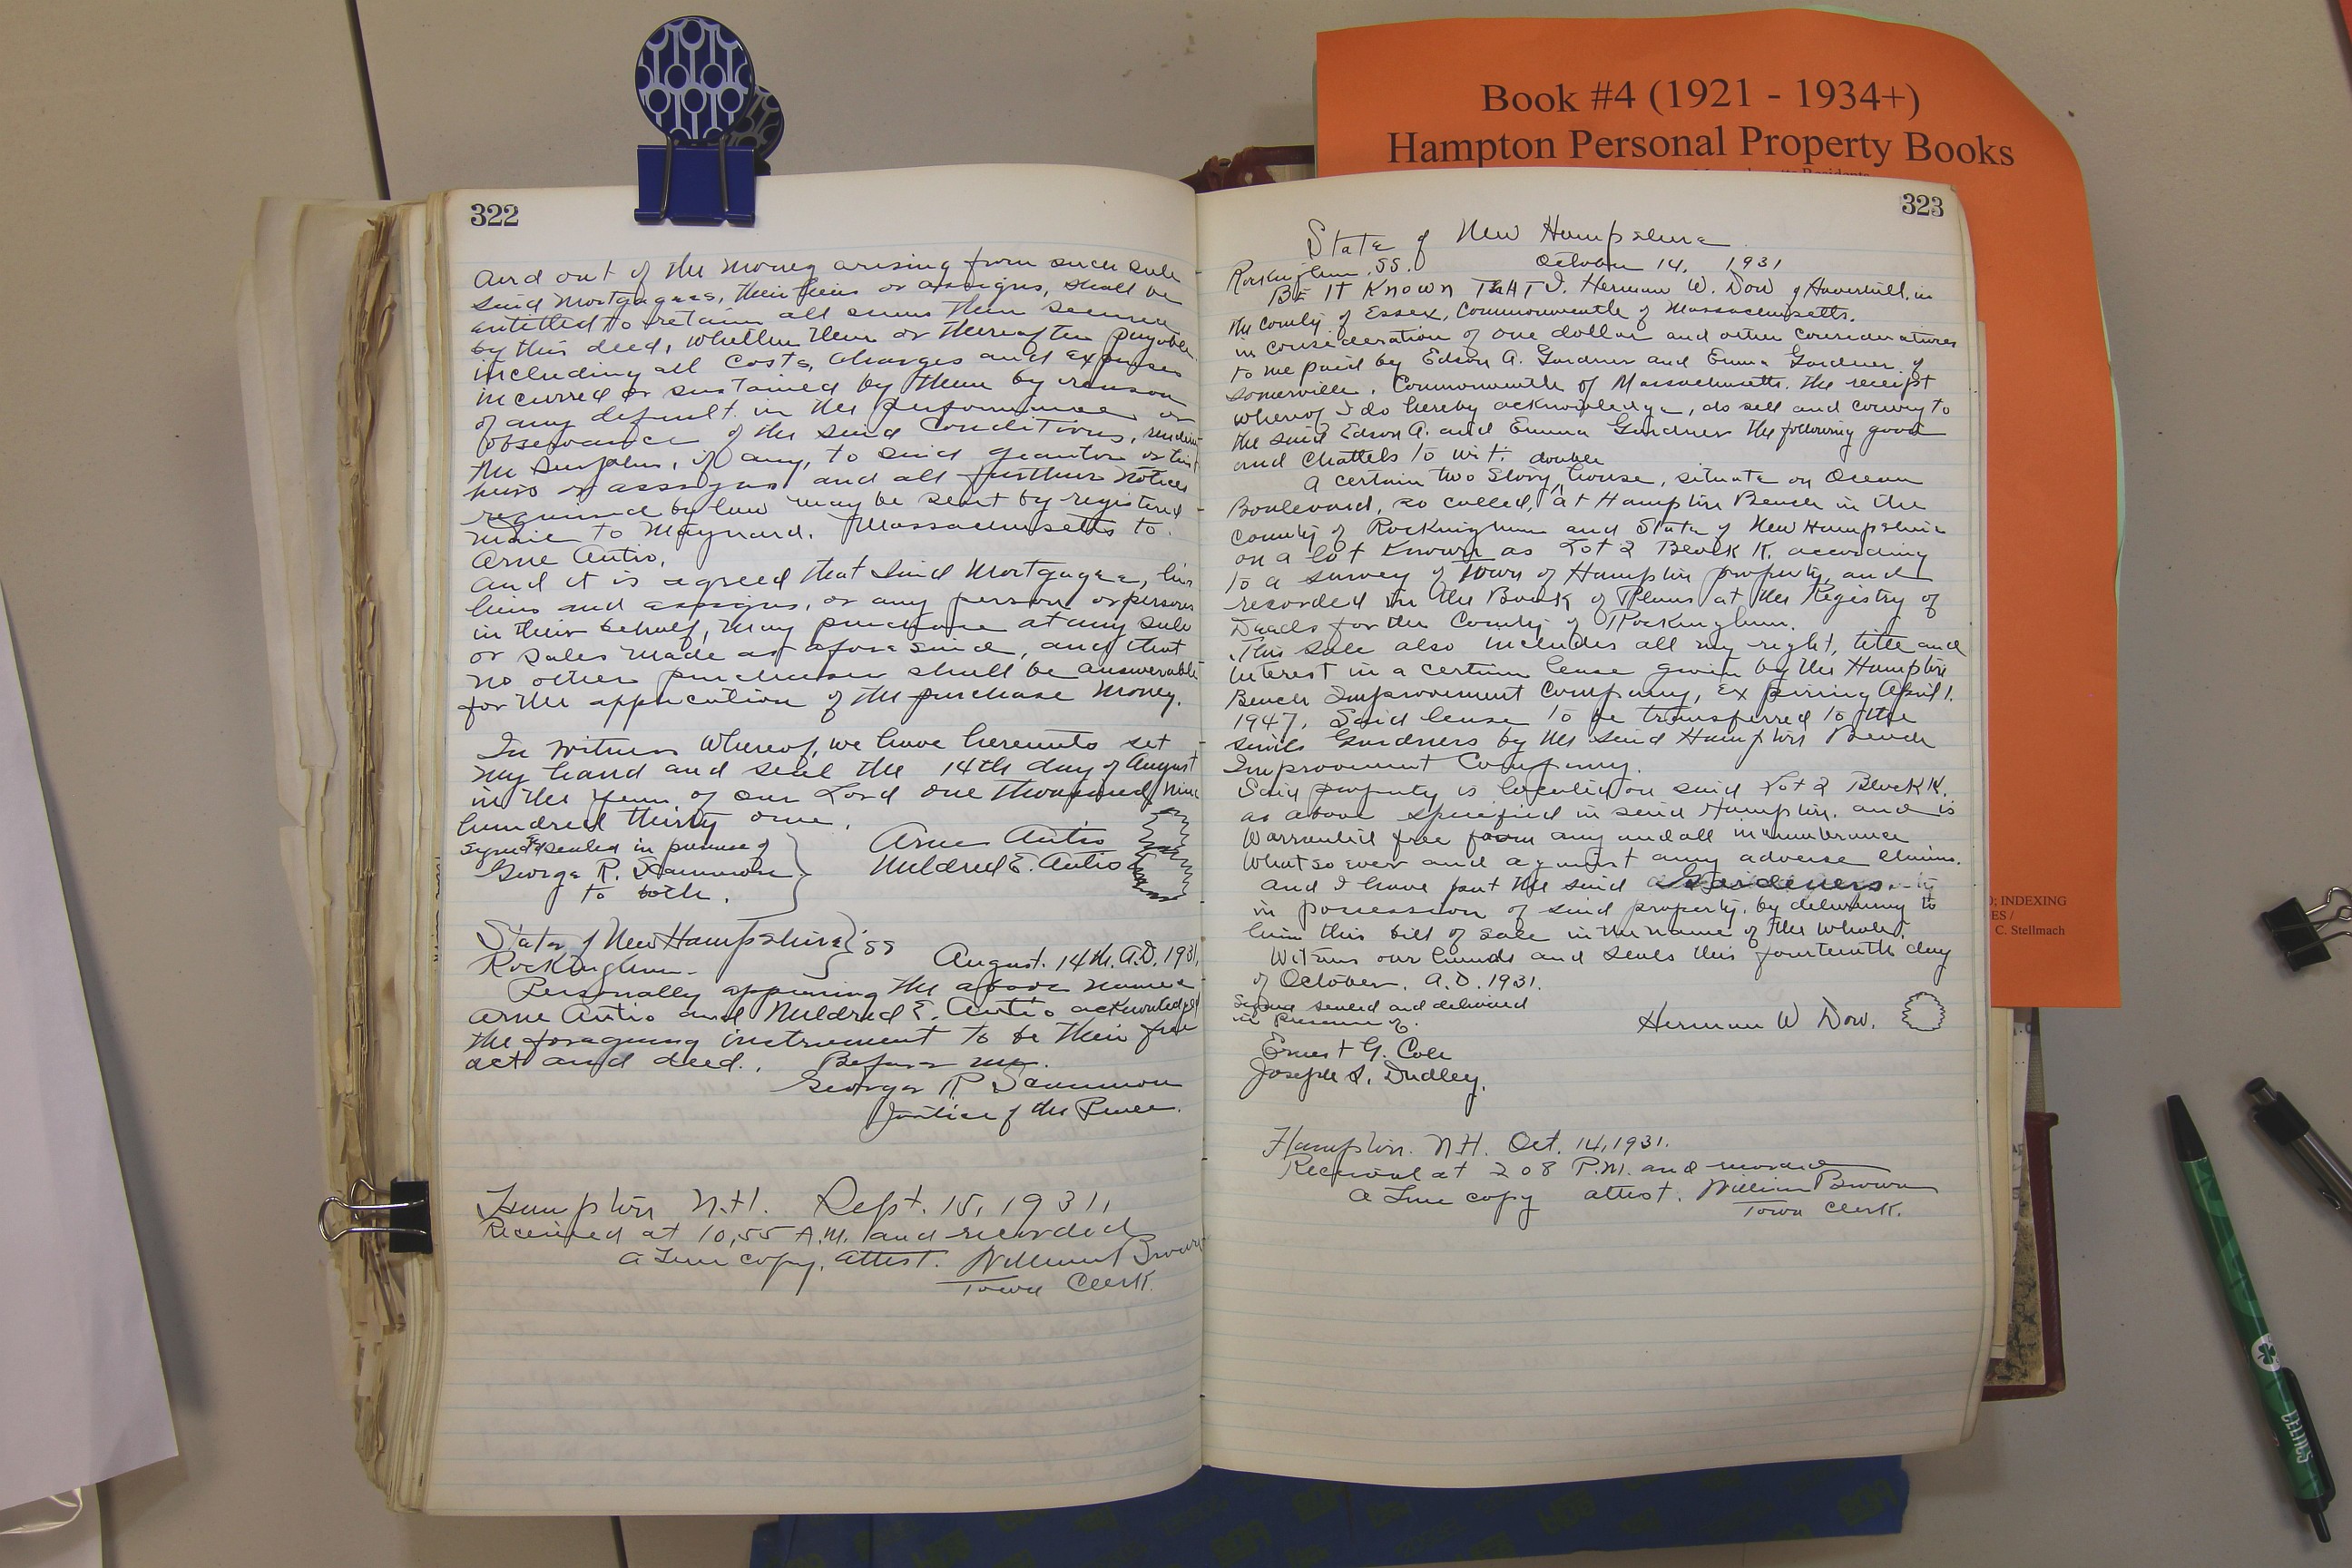 Book #4 (1921 - 1934+)
Hampton Personal Property Books
322
And out of the money arising from such sale
said Mortgagees, their heirs or assigns, shall be
entitled to retain all sums then secured
by this deed, whether then or thereafter payable
including all costs, charges and expenses
incurred or sustained by them by reason
of any default in the performance or
observance of the said Conditions, rendering
the surplus, if any, to said grantor or their
heirs or assigns and all further notices
required by law may be sent by registered
maie to Maynard, Massachusetts to
Arne Autio.
And it is agreed that said Mortgagee, his
heirs and assigns, or any person or persons
in their behalf, may purchase at any sale
or sales made as aforesaid, and that
no other purchaser shall be answerable
for the application of the purchase money.
In Witness Whereof, we have hereunto set
my hand and seal the 14th day of August
in the year of our Lord one thousand nine
hundred thirty one.
Signed & sealed in presence of
George R. Sammon
to both.
Arne Autio
Mildred E. Autio
State of New Hampshire } SS
Rockingham. August. 14th. A.D. 1931.
Personally appearing the above named
Arne Autio and Mildred E. Autio acknowledged
the foregoing instrument to be their free
act and deed. Before me.
George R Sammon
Justice of the Peace.
Hampton N.H. Sept. 15, 1931.
Received at 10,55 A.M. and recorded
a true copy, attest. William Brown
Town Clerk.
323
State of New Hampshire
Rockingham. SS. October 14, 1931
BE IT KNOWN THAT I. Herman W. Dow of Haverhill, in
the County of Essex, Commonwealth of Massachusetts.
in consideration of one dollar and other considerations
to me paid by Edson A. Gardner and Emma Gardner of
Somerville, Commonwealth of Massachusetts. the receipt
whereof I do hereby acknowledge, do sell and convey to
the said Edson A. and Emma Gardner the following good
and Chattels to wit.
double
A certain two Story, house, situate on Ocean
Boulevard, so called, at Hampton Beach in the
County of Rockingham and State of New Hampshire
on a lot known as Lot 2 Block K. according
to a survey of Town of Hampton property, and
recorded in the Book of Plans at the Registry of
Deeds for the County of Rockingham.
This Sale also includes all my right, title and
interest in a certain lease given by the Hampton
Beach Improvement Company, Expiring April 1.
1947, Said lease to be transferred to the
said Gardners by the said Hampton Beach
Improvement Company.
Said property is located on said Lot 2 Block K.
as above specified in said Hampton, and is
Warranted free from any and all incumbrance
Whatsoever and against any adverse claims.
And I have put the said Gardeners
in possession of said property, by delivering to
him this bill of sale in the name of the whole.
Witness our hands and seals this fourteenth day
of October. A.D. 1931.
Signed sealed and delivered
in presence of.
Herman W Dow.
Ernest G. Cole
Joseph S. Dudley.
Hampton. N.H. Oct. 14, 1931.
Received at 2 08 P.M. and recorded
a true copy attest. William Brown
Town Clerk.
INDEXING
C. Stellmach
CELTICS